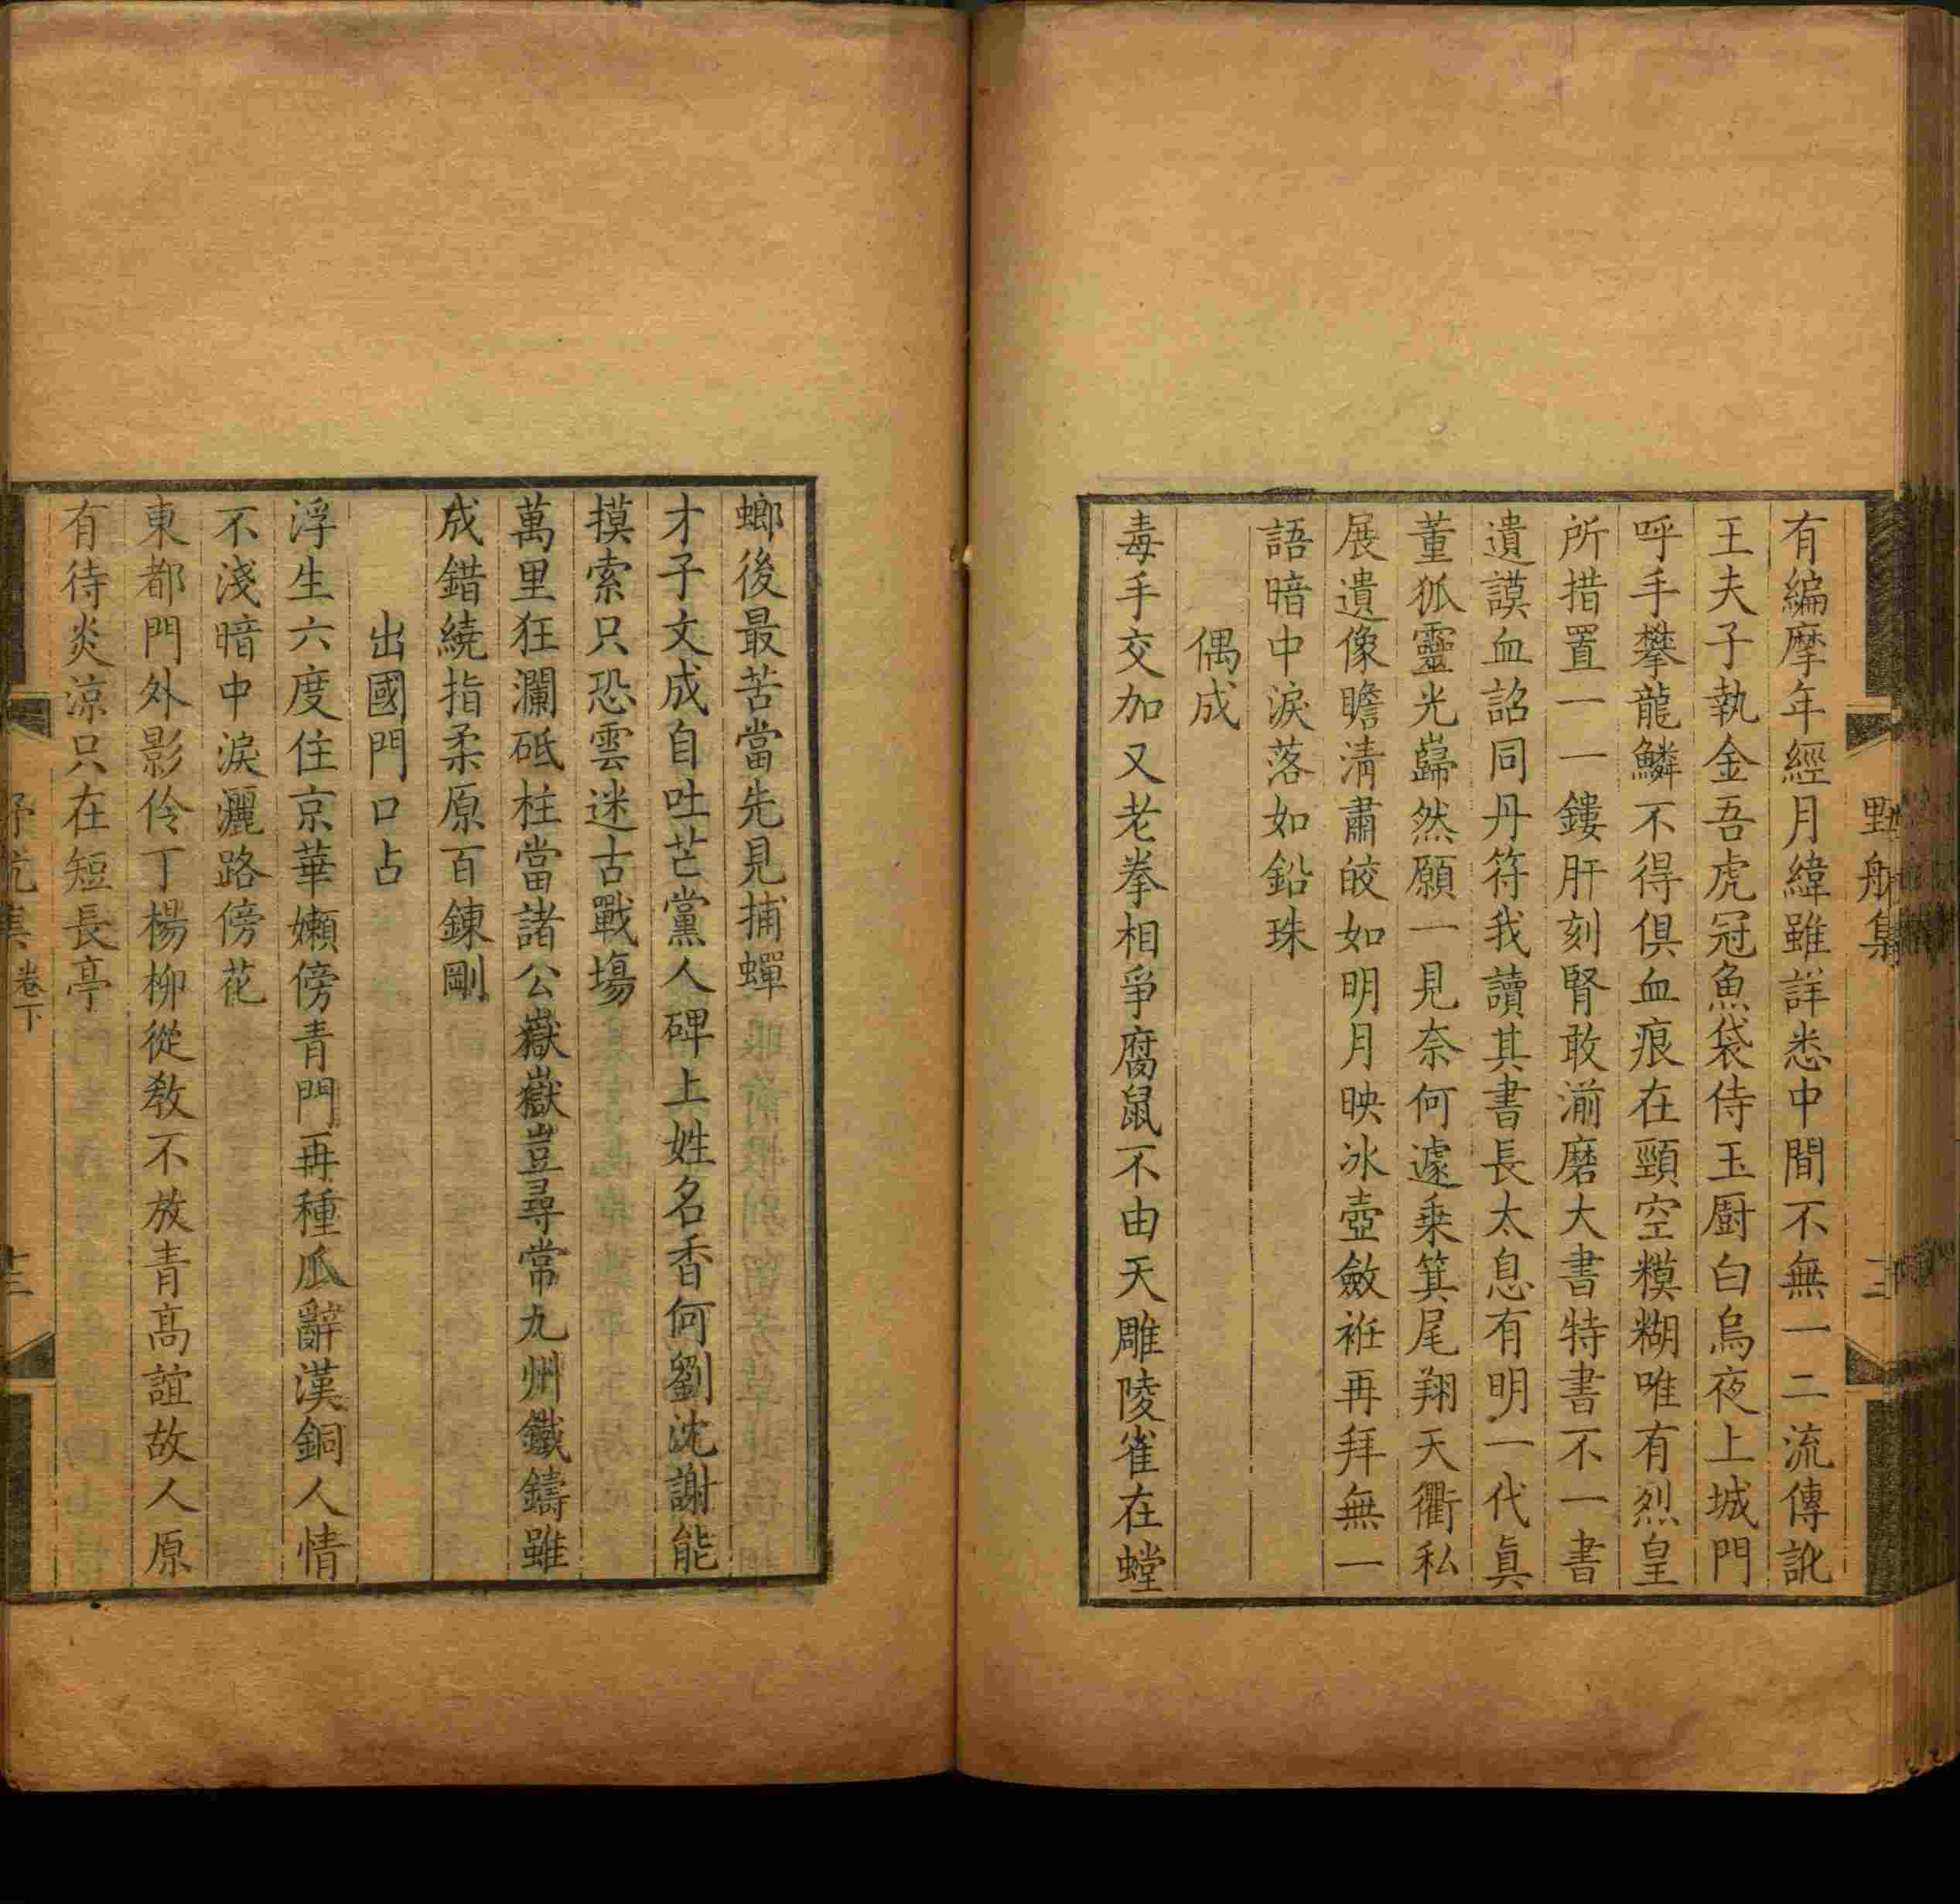 有編摩年經月緯雖詳悉中間不無一二流傳訛
王夫子執金吾虎冠魚袋侍玉厨白烏夜上城門
呼手攀龍鱗不得俱血痕在頸空糢糊唯有烈皇
所措置一一鏤肝刻腎敢湔磨大書特書不一書
遺謨血詔同丹符我讀其書長太息有明一代眞
董狐靈光巋然願一見奈何遽乗箕尾翔天衢私
展遺像瞻清肅皎如明月映冰壺斂袵再拜無一
語暗中淚落如鉛珠
偶成
毒手交加又老拳相爭腐鼠不由天雕陵雀在螳
螂後最苦當先見捕蟬
才子文成自吐芒黨人碑上姓名香何劉沈謝能
摸索只恐雲迷古戰場
萬里狂瀾砥柱當諸公嶽嶽豈尋常九州鐵鑄雖
成錯繞指柔原百鍊剛
出國門口占
浮生六度住京華嬾傍青門再種瓜辭漢銅人情
不淺暗中淚灑路傍花
東都門外影伶丁楊柳從教不放青高誼故人原
有待炎涼只在短長亭
卷下